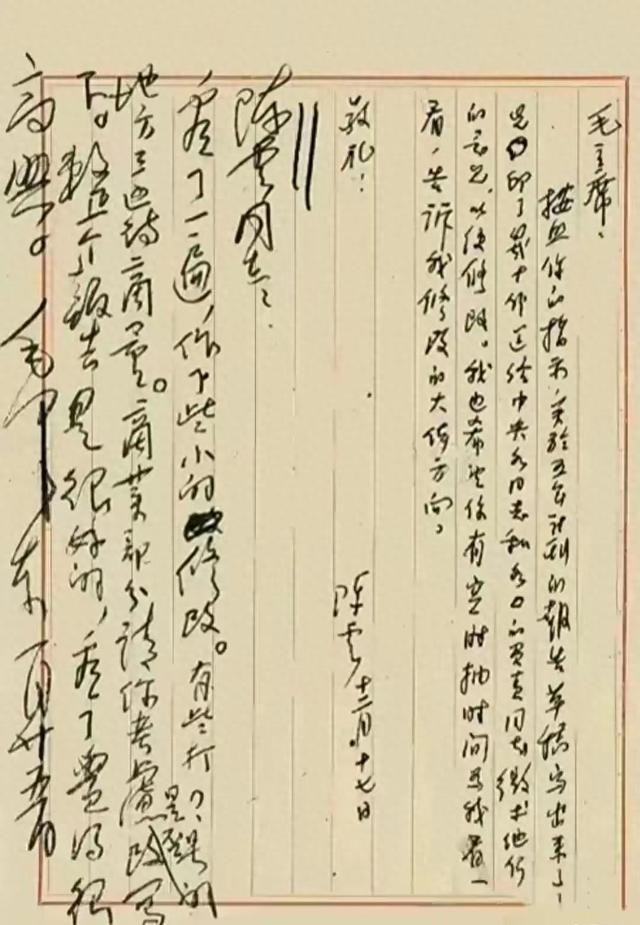 毛主席：
按照你的指示，关於五年计划的报告草稿写出来了，
先印了几十份送给中央各同志和各口的负责同志，徵求他们
的意见，以便修改。我也希望你有空时抽时间给我看一
看，告诉我修改的大体方向。
敬礼！
陈云 十二月十七日
陈云同志：
看了一遍，作了些小的修改。有些打了？号的
地方 待商量。商业部分请你考虑改写
下。整个报告是很好的，看了觉得很
高兴。毛泽东 一月廿五日